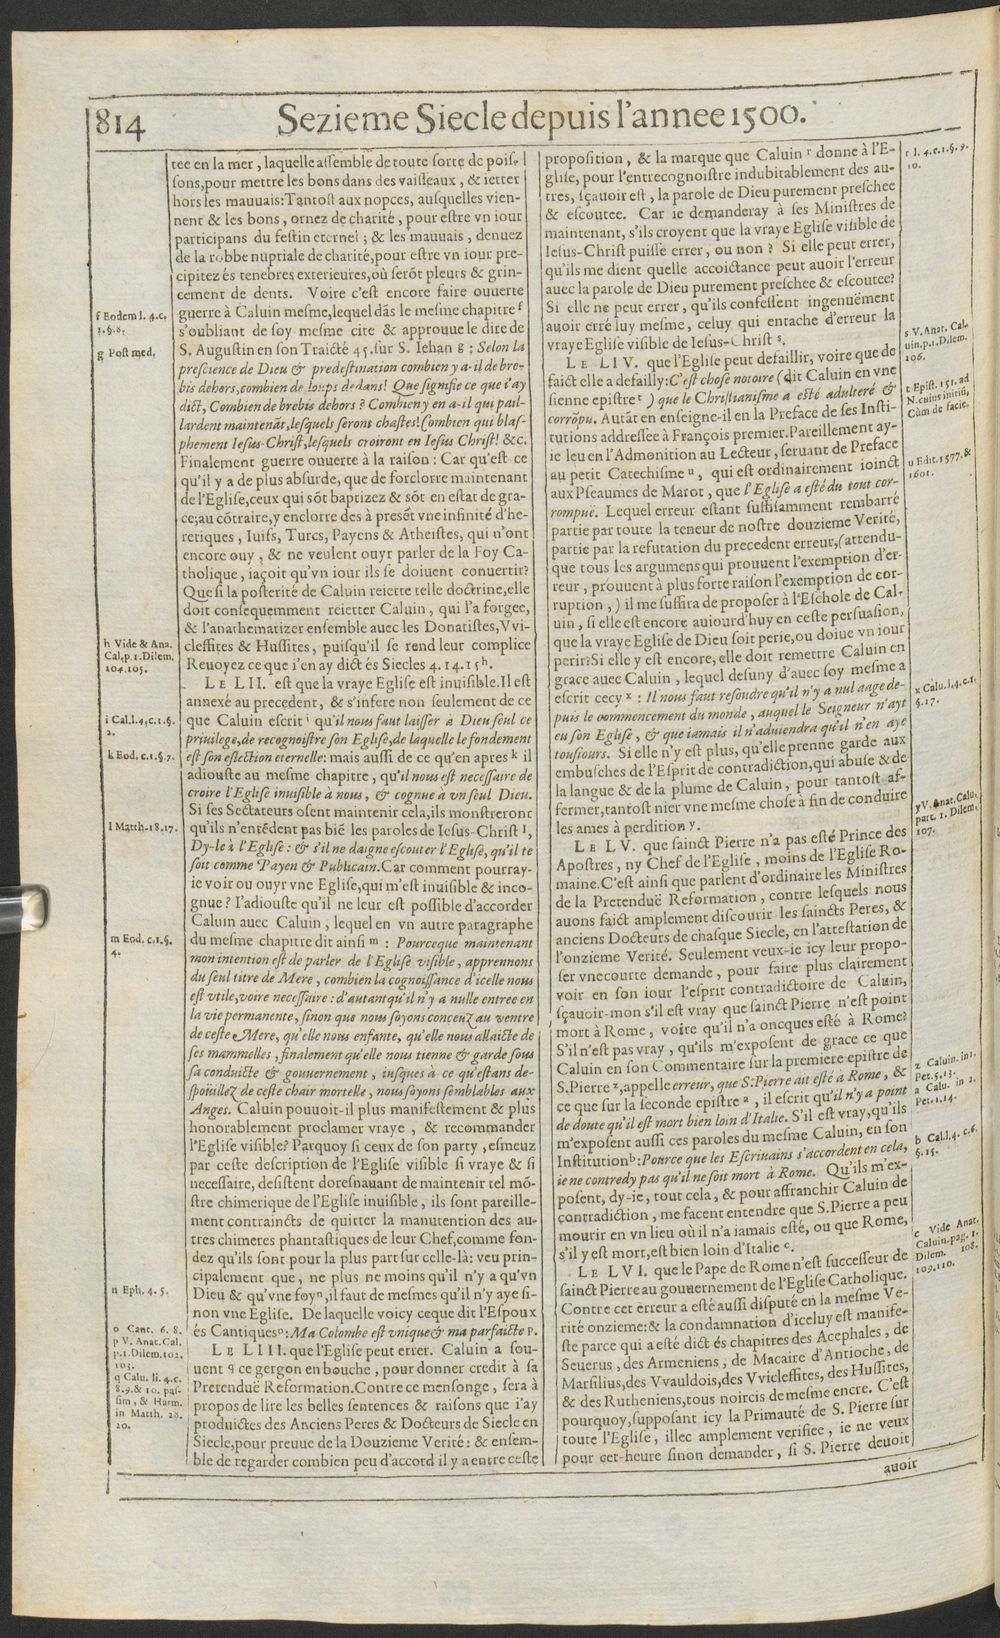 814
Sezieme Siecle depuis l'annee 1500.
tee en la mer, laquelle assemble de toute sorte de pois-
sons, pour mettre les bons dans des vaisseaux, & ietter
hors les mauuais: Tantost aux nopces, ausquelles vien-
nent & les bons, ornez de charité, pour estre vn iour
participans du festin eternel; & les mauuais, denuez
de la robbe nuptiale de charité, pour estre vn iour pre-
cipitez és tenebres exterieures, où serõt pleurs & grin-
cement de dents. Voire c'est encore faire ouuerte
guerre à Caluin mesme, lequel dãs le mesme chapitre f
s'oubliant de soy mesme cite & approuue le dire de
S. Augustin en son Traicté 45. sur S. Iehan g : Selon la
prescience de Dieu & predestination combien y a-il de bre-
bis dehors, combien de loups dedans! Que signifie ce que i'ay
dict, Combien de brebis dehors? Combien y en a-il qui pail-
lardent maintenãt, lesquels seront chastes! Combien qui blas-
phement Iesus-Christ, lesquels croiront en Iesus Christ! &c.
Finalement guerre ouuerte à la raison: Car qu'est ce
qu'il y a de plus absurde, que de forclorre maintenant
de l'Eglise, ceux qui sõt baptizez & sõt en estat de gra-
ce; au cõtraire, y enclorre des à presẽt vne infinité d'he-
retiques, Iuifs, Turcs, Payens & Atheistes, qui n'ont
encore ouy, & ne veulent ouyr parler de la Foy Ca-
tholique, iaçoit qu'vn iour ils se doiuent conuertir?
Que si la posterité de Caluin reiette telle doctrine, elle
doit consequemment reietter Caluin, qui l'a forgee,
& l'anathematizer ensemble auec les Donatistes, Vvi-
cleffites & Hussites, puisqu'il se rend leur complice
Reuoyez ce que i'en ay dict és Siecles 4. 14. 15 h.
LE LII. est que la vraye Eglise est inuisible. Il est
annexé au precedent, & s'infere non seulement de ce
que Caluin escrit i qu'il nous faut laisser à Dieu seul ce
priuilege, de recognoistre son Eglise, de laquelle le fondement
est son eslection eternelle: mais aussi de ce qu'en apres k il
adiouste au mesme chapitre, qu'il nous est necessaire de
croire l'Eglise inuisible à nous, & cognue à vn seul Dieu.
Si ses Sectateurs osent maintenir cela, ils monstreront
qu'ils n'entẽdent pas biẽ les paroles de Iesus-Christ l,
Dy-le à l'Eglise: & s'il ne daigne escouter l'Eglise, qu'il te
soit comme Payen & Publicain. Car comment pourray-
ie voir ou ouyr vne Eglise, qui m'est inuisible & inco-
gnue? I'adiouste qu'il ne leur est possible d'accorder
Caluin auec Caluin, lequel en vn autre paragraphe
du mesme chapitre dit ainsi m : Pourceque maintenant
mon intention est de parler de l'Eglise visible, apprennons
du seul titre de Mere, combien la cognoissance d'icelle nous
est vtile, voire necessaire: d'autant qu'il n'y a nulle entree en
la vie permanente, sinon que nous soyons conceuz au ventre
de ceste Mere, qu'elle nous enfante, qu'elle nous allaicte de
ses mammelles, finalement qu'elle nous tienne & garde sous
sa conduicte & gouuernement, iusques à ce qu'estans de-
spoüillez de ceste chair mortelle, nous soyons semblables aux
Anges. Caluin pouuoit-il plus manifestement & plus
honorablement proclamer vraye, & recommander
l'Eglise visible? Parquoy si ceux de son party, esmeuz
par ceste description de l'Eglise visible si vraye & si
necessaire, desistent doresnauant de maintenir tel mõ-
stre chimerique de l'Eglise inuisible, ils sont pareille-
ment contraincts de quitter la manutention des au-
tres chimeres phantastiques de leur Chef, comme fon-
dez qu'ils sont pour la plus part sur celle-là: veu prin-
cipalement que, ne plus ne moins qu'il n'y a qu'vn
Dieu & qu'vne foy n, il faut de mesmes qu'il n'y aye si-
non vne Eglise. De laquelle voicy ceque dit l'Espoux
és Cantiques o: Ma Colombe est vnique & ma parfaicte p.
LE LIII. que l'Eglise peut errer. Caluin a sou-
uent q ce gergon en bouche, pour donner credit à sa
Pretenduë Reformation. Contre ce mensonge, sera à
propos de lire les belles sentences & raisons que i'ay
produictes des Anciens Peres & Docteurs de Siecle en
Siecle, pour preuue de la Douzieme Verité: & ensem-
ble de regarder combien peu d'accord il y a entre ceste
f Eodem l. 4. c.
1. §. 8.
g Post med.
h Vide & Ana.
Cal. p. 1. Dilem.
104. 105.
i Cal. l. 4. c. 1. §.
2.
k Eod. c. 1. §. 7.
l Matth. 18. 17.
m Eod. c. 1. §.
4.
n Eph. 4. 5.
o Cant. 6. 8.
p V. Anat. Cal.
p. 1. Dilem. 102.
103.
q Calu. li. 4. c.
8. 9. & 10. pas-
sim, & Harm.
in Matth. 28.
20.
proposition, & la marque que Caluin r donne à l'E-
glise, pour l'entrecognoistre indubitablement des au-
tres, sçauoir est, la parole de Dieu purement preschee
& escoutee. Car ie demanderay à ses Ministres de
maintenant, s'ils croyent que la vraye Eglise visible de
Iesus-Christ puisse errer, ou non? Si elle peut errer,
qu'ils me dient quelle accoictance peut auoir l'erreur
auec la parole de Dieu purement preschee & escoutee?
Si elle ne peut errer, qu'ils confessent ingenuëment
auoir erré luy mesme, celuy qui entache d'erreur la
vraye Eglise visible de Iesus-Christ s.
LE LIV. que l'Eglise peut defaillir, voire que de
faict elle a defailly: C'est chose notoire (dit Caluin en vne
sienne epistre t) que le Christianisme a esté adulteré &
corrõpu. Autãt en enseigne-il en la Preface de ses Insti-
tutions addressee à François premier. Pareillement ay-
ie leu en l'Admonition au Lecteur, seruant de Preface
au petit Catechisme u, qui est ordinairement ioinct
aux Pseaumes de Marot, que l'Eglise a esté du tout cor-
rompuë. Lequel erreur estant suffisamment rembarré
partie par toute la teneur de nostre douzieme Verité,
partie par la refutation du precedent erreur, (attendu-
que tous les argumens qui prouuent l'exemption d'er-
reur, prouuent à plus forte raison l'exemption de cor-
ruption,) il me suffira de proposer à l'Eschole de Cal-
uin, si elle est encore auiourd'huy en ceste persuasion,
que la vraye Eglise de Dieu soit perie, ou doiue vn iour
perir? Si elle y est encore, elle doit remettre Caluin en
grace auec Caluin, lequel desuny d'auec soy mesme a
escrit cecy x : Il nous faut resoudre qu'il n'y a nul aage de-
puis le commencement du monde, auquel le Seigneur n'ayt
eu son Eglise, & que iamais il n'aduiendra qu'il n'en aye
tousiours. Si elle n'y est plus, qu'elle prenne garde aux
embusches de l'Esprit de contradiction, qui abuse & de
la langue & de la plume de Caluin, pour tantost af-
fermer, tantost nier vne mesme chose à fin de conduire
les ames à perdition y.
LE LV. que sainct Pierre n'a pas esté Prince des
Apostres, ny Chef de l'Eglise, moins de l'Eglise Ro-
maine. C'est ainsi que parlent d'ordinaire les Ministres
de la Pretenduë Reformation, contre lesquels nous
auons faict amplement discourir les saincts Peres, &
anciens Docteurs de chasque Siecle, en l'attestation de
l'onzieme Verité. Seulement veux-ie icy leur propo-
ser vne courte demande, pour faire plus clairement
voir en son iour l'esprit contradictoire de Caluin,
sçauoir-mon s'il est vray que sainct Pierre n'est point
mort à Rome, voire qu'il n'a oncques esté à Rome?
S'il n'est pas vray, qu'ils m'exposent de grace ce que
Caluin en son Commentaire sur la premiere epistre de
S. Pierre z, appelle erreur, que S. Pierre ait esté à Rome, &
ce que sur la seconde epistre a, il escrit qu'il n'y a point
de doute qu'il est mort bien loin d'Italie. S'il est vray, qu'ils
m'exposent aussi ces paroles du mesme Caluin, en son
Institution b: Pource que les Escriuains s'accordent en cela,
ie ne contredy pas qu'il ne soit mort à Rome. Qu'ils m'ex-
posent, dy-ie, tout cela, & pour affranchir Caluin de
contradiction, me facent entendre que S. Pierre a peu
mourir en vn lieu où il n'a iamais esté, ou que Rome,
s'il y est mort, est bien loin d'Italie c.
LE LVI. que le Pape de Rome n'est successeur de
sainct Pierre au gouuernement de l'Eglise Catholique.
Contre cet erreur a esté aussi disputé en la mesme Ve-
rité onzieme: & la condamnation d'iceluy est manife-
ste parce qui a esté dict és chapitres des Acephales, de
Seuerus, des Armeniens, de Macaire d'Antioche, de
Marsilius, des Vvauldois, des Vvicleffites, des Hussites,
& des Rutheniens, tous noircis de mesme encre. C'est
pourquoy, supposant icy la Primauté de S. Pierre sur
toute l'Eglise, illec amplement verifiee, ie ne veux
pour cet-heure sinon demander, si S. Pierre deuoit
auoir
r l. 4. c. 1. §. 9.
10.
s V. Anat. Cal-
uin. p. 1. Dilem.
106.
t Epist. 151. ad
N. cuius initiũ,
Cùm de facie.
u Edit. 1577. &
1601.
x Calu. l. 4. c. 1.
§. 17.
y V. Anat. Calu.
part. 1. Dilem.
107.
z Caluin. in 1.
Pet. 5. 13.
a Calu. in 2.
Pet. 1. 14.
b Cal. l. 4. c. 6.
§. 15.
c Vide Anat.
Caluin. pag. 1.
Dilem. 108.
109. 110.